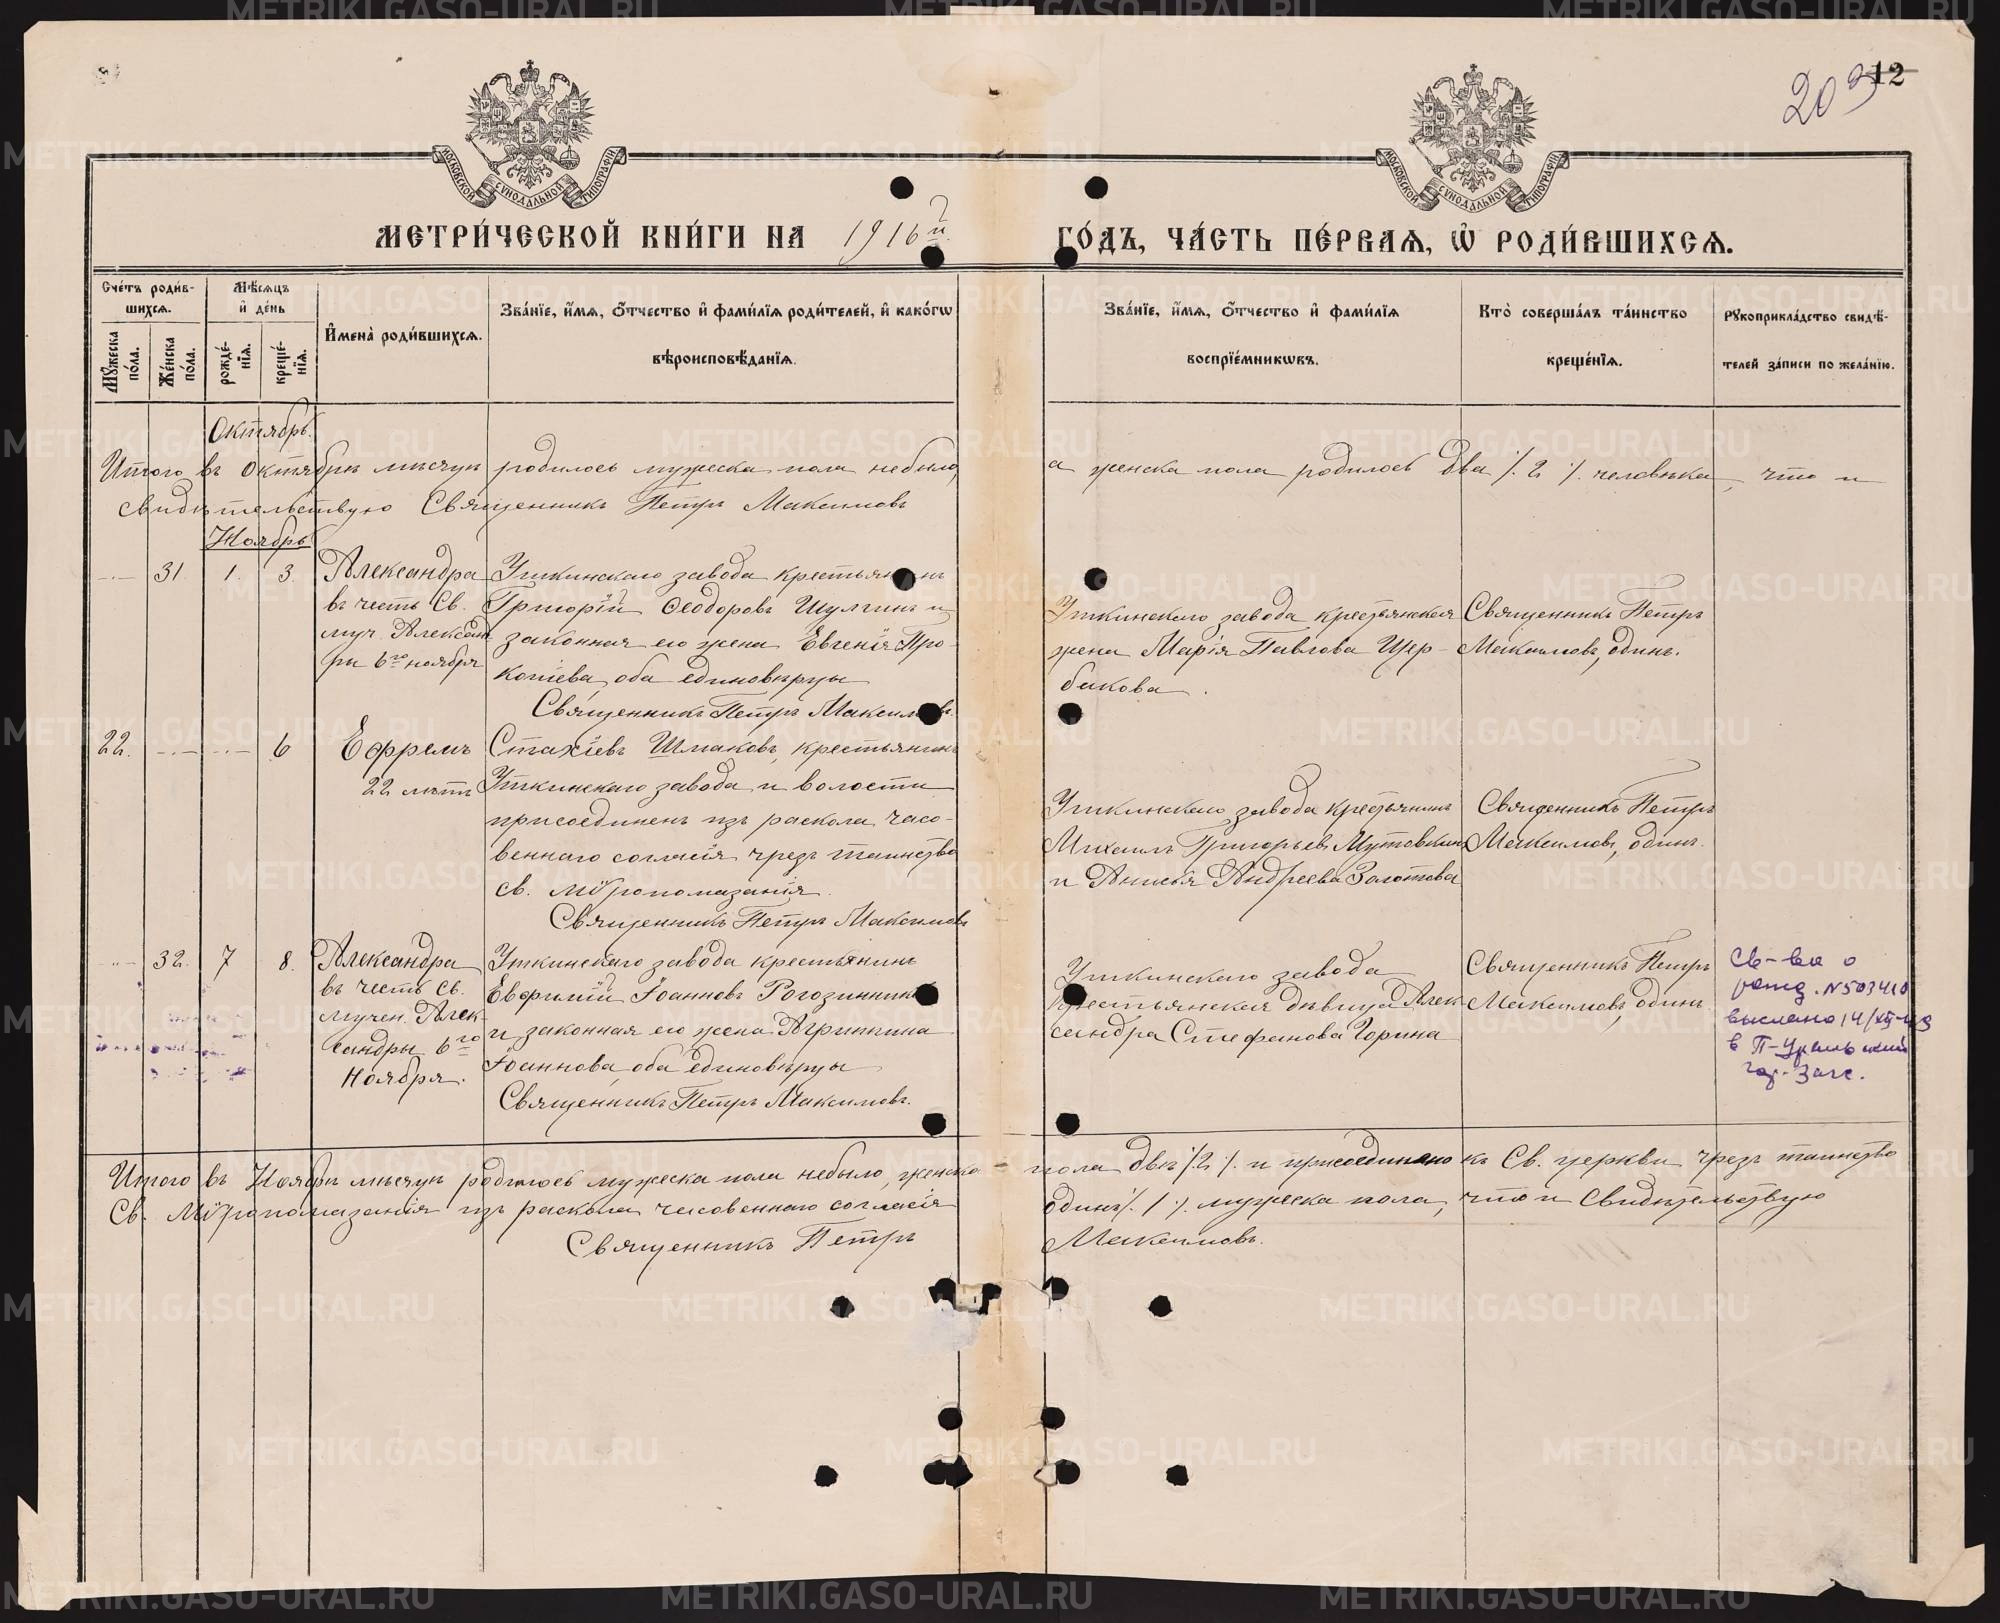 203
12
МОСКОВСКОЙ СѴНОДАЛЬНОЙ ТИПОГРАФІИ
МОСКОВСКОЙ СѴНОДАЛЬНОЙ ТИПОГРАФІИ
МЕТРИ́ЧЕСКОЙ КНИ́ГИ НА 1916й ГО́ДЪ, ЧА́СТЬ ПЕ́РВАЯ, Ѽ РОДИ́ВШИХСЯ.
Сче́тъ роди́в-
шихся.
Му́жеска по́ла.
Же́нска по́ла.
Мѣ́сяцъ
и҆ де́нь
рожде́-
нїя.
креще́-
нїя.
И҆мена̀ роди́вшихся.
Зва́нїе, и҆́мя, ѻ҆́тчество и҆ фами́лїя роди́телей, и҆ како́гѡ
вѣроисповѣ́данїя.
Зва́нїе, и҆́мя, ѻ҆́тчество и҆ фами́лїя
воспрїе́мникѡвъ.
Кто̀ соверша́лъ та́инство
креще́нїя.
Рукоприкла́дство свидѣ́-
телей за́писи по жела́нїю.
Октябрь.
Итого въ Октябрѣ мѣсяцѣ родилось мужеска пола небыло, а женска пола родилось два ٪2٪ человѣка, что и
свидѣтельствую Священникъ Петръ Максимовъ
Ноябрь
31 1. 3.
Александра
въ честь Св.
муч. Александ
ры 6го ноября
Уткинскаго завода крестьянинъ
Григорій Ѳеодоровъ Шулгинъ и
законная его жена Евгенія Про-
копіева, оба единовѣрцы
Священникъ Петръ Максимовъ.
Уткинскаго завода крестьянская
жена Марія Павлова Щер-
бакова.
Священникъ Петръ
Максимовъ, одинъ.
22. 6
Ефремъ
22 лѣтъ
Стахіевъ Шмаковъ, крестьянинъ
Уткинскаго завода и волости
присоединенъ изъ раскола часо-
веннаго согласія чрезъ таинство
св. мѵропомазанія.
Священникъ Петръ Максимовъ
Уткинскаго завода крестьянинъ
Михаилъ Григорьевъ Мутовкинъ
и Анисья Андреева Золотова
Священникъ Петръ
Максимовъ, одинъ.
32. 7 8.
Александра
въ честь св.
мучен. Алек-
сандры 6го
Ноября.
Уткинскаго завода крестьянинъ
Евфимій Іоанновъ Рогозинник
и законная его жена Агрипина
Іоаннова, оба единовѣрцы
Священникъ Петръ Максимовъ.
Уткинскаго завода
крестьянская дѣвица Алек-
сандра Стефанова Горина
Священникъ Петръ
Максимовъ, одинъ
Св-во о
рожд. N503410
выслано 14/XII
в П-Уральский
гор-Загс.
Итого въ Ноябрѣ мѣсяцѣ родилось мужеска пола небыло, женска - пола двѣ ٪2٪ и присоединено къ Св. церкви чрезъ таинство
Св. Мѵропомазанія изъ раскола часовеннаго согласія одинъ ٪1٪ мужеска пола, что и Свидѣтельствую
Священникъ Петръ Максимовъ.
METRIKI.GASO-URAL.RU